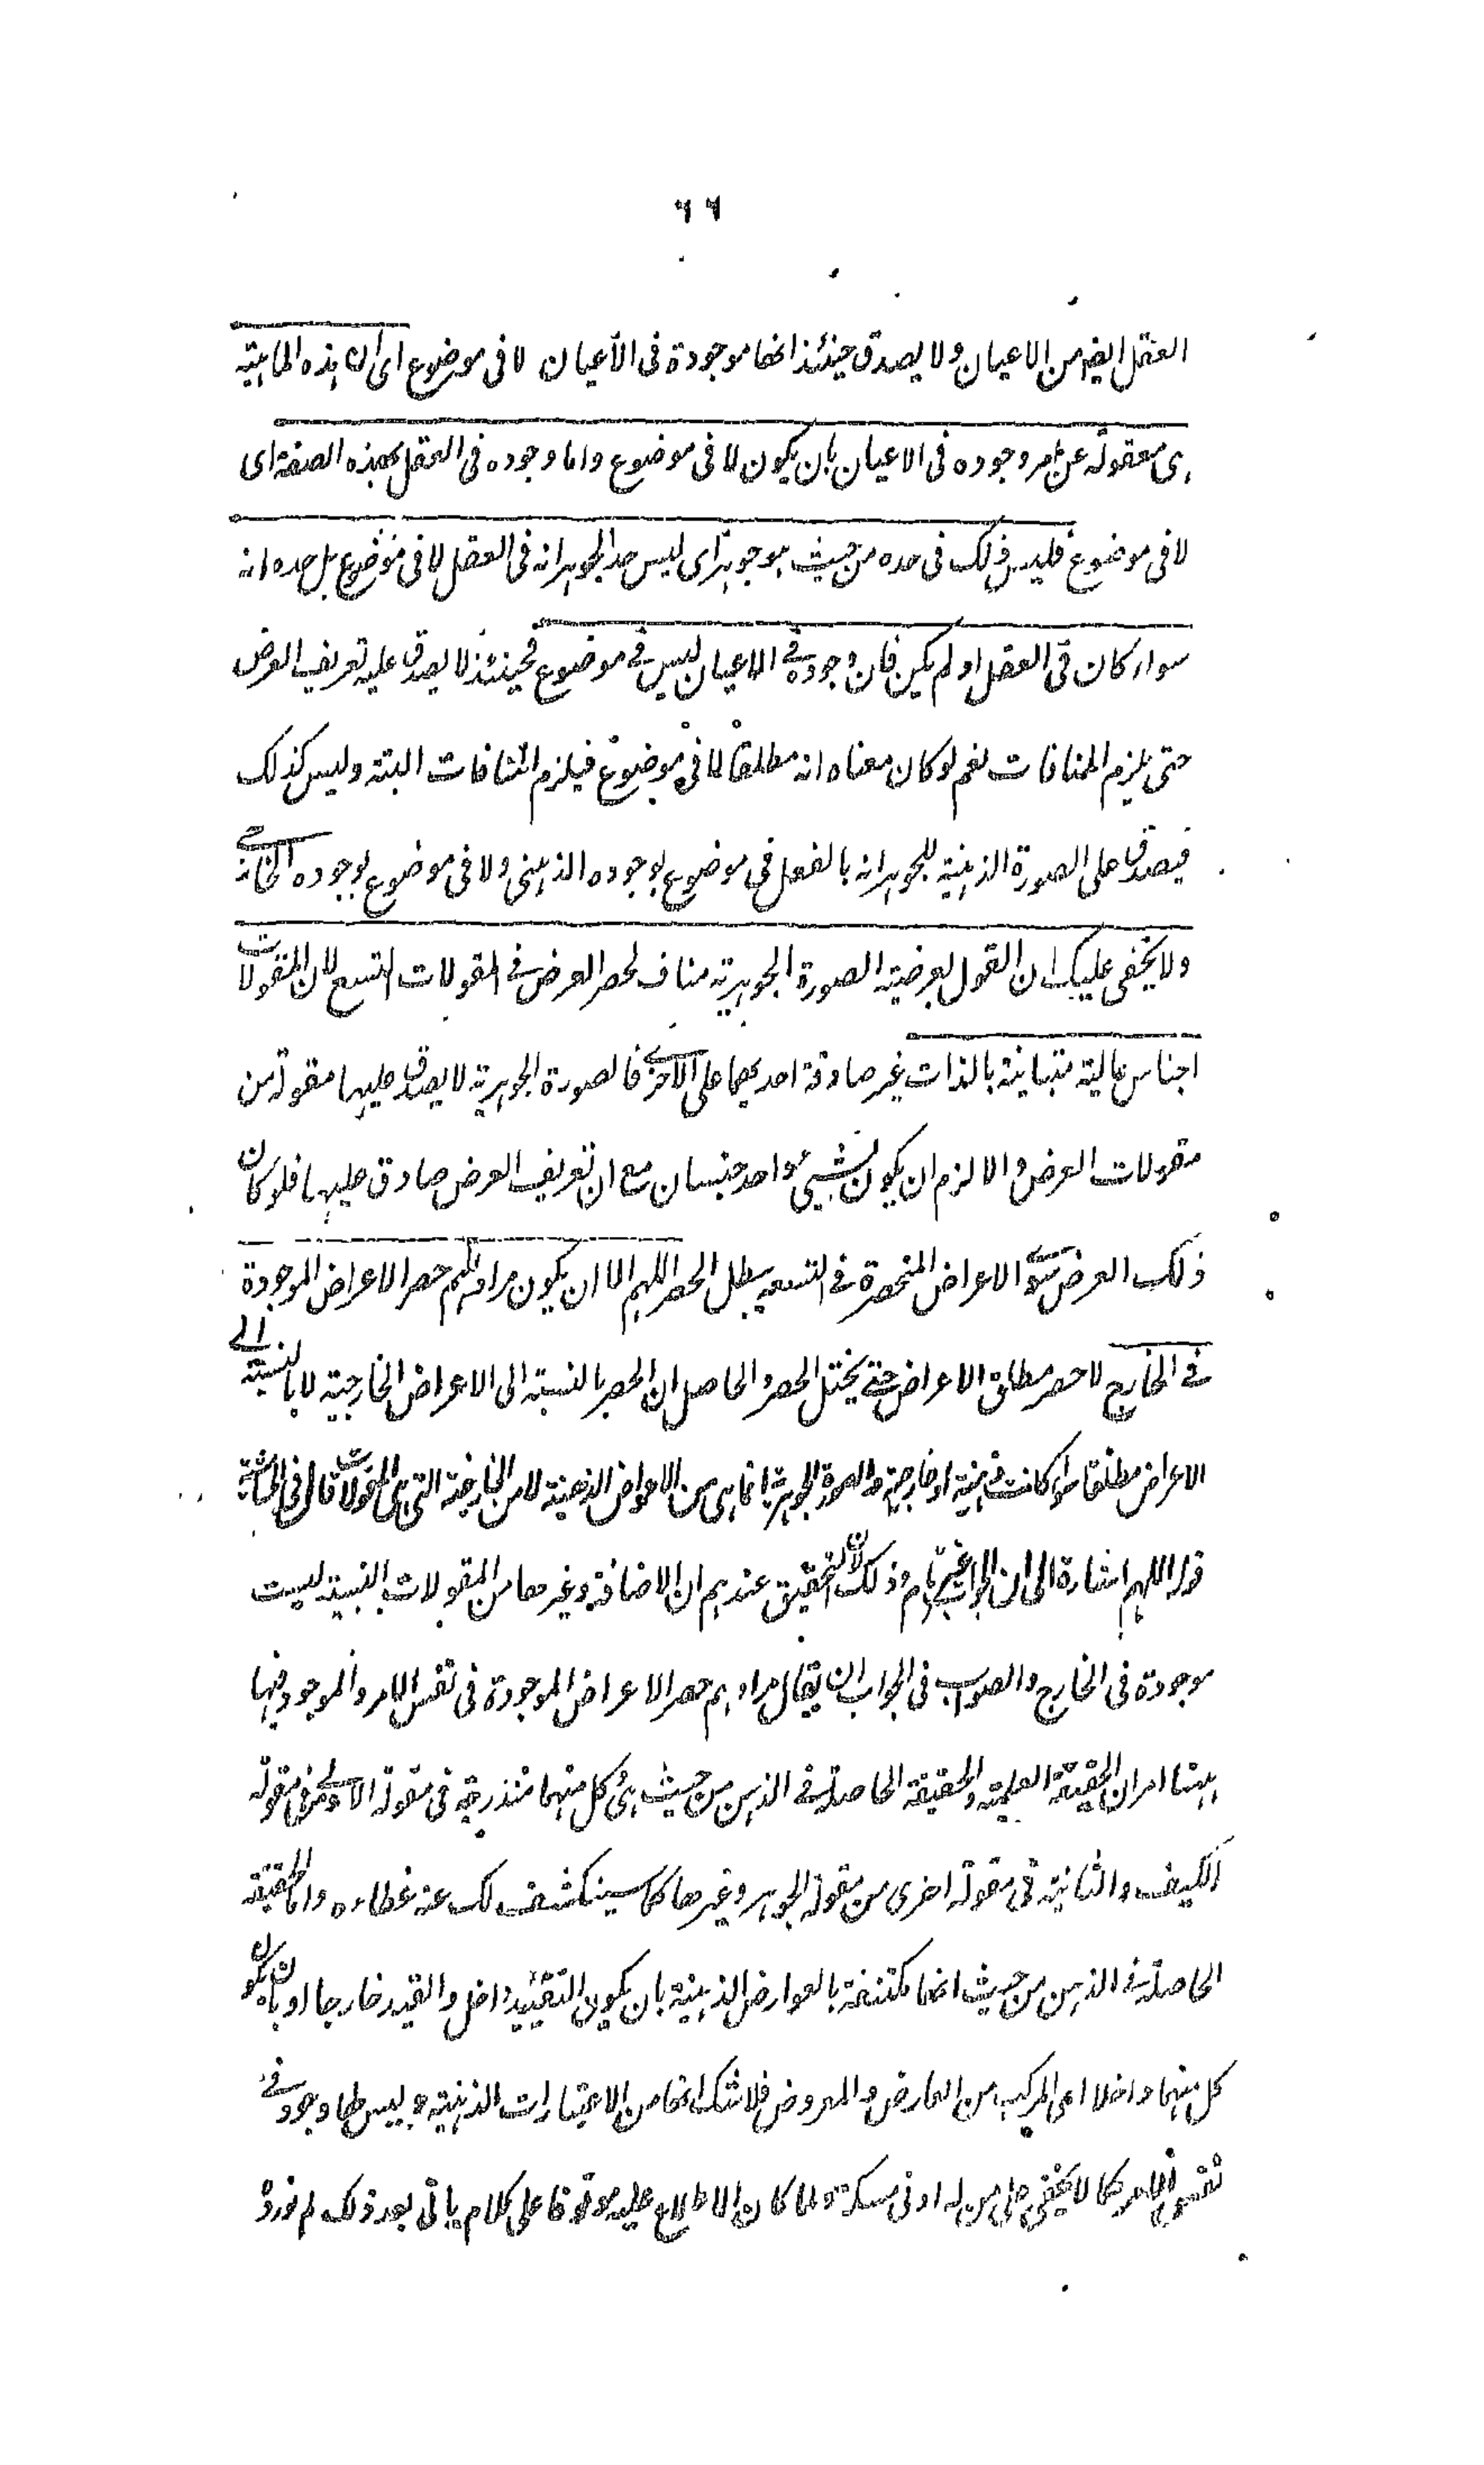 ٦٦
العقل ايضر من الاعيان ولا يصدق حينئذ انها موجودة فى الاعيان لا فى موضوع اى ان هذه الماهية
هى معقولة عن امر وجوده فى الاعيان بان يكون لا فى موضوع واما وجوده فى العقل بهذه الصفة اى
لا فى موضوع فليس ذلك فى حده من حيث هو جوهر اى ليس حد الجوهر انه فى العقل لا فى موضوع بل حده انه
سواء كان فى العقل او لم يكن فان وجوده فى الاعيان ليس فى موضوع فحينئذ لا يصدق عليه تعريف العرض
حتى يلزم المنافات نعم لو كان معناه انه مطلقا لا فى موضوع فيلزم المنافات البتة وليس كذلك
فيصدق على الصورة الذهنية للجوهر انه بالفعل فى موضوع بوجوده الذهنى ولا فى موضوع بوجوده الخارجى
ولا يخفى عليك ان القول بعرضية الصورة الجوهرية مناف لحصر العرض فى المقولات التسع لان المقولات
اجناس عالية متباينة بالذات غير صادقة احديهما على الاخرى فالصورة الجوهرية لا يصدق عليها مقولة من
مقولات العرض والا لزم ان يكون لشيئ واحد جنسان مع ان تعريف العرض صادق عليها فلو كان
ذلك العرض سوى الاعراض المنحصرة فى التسعة يبطل الحصر اللهم الا ان يكون مرادهم حصر الاعراض الموجودة
فى الخارج لا حصر مطلق الاعراض حتى يختل الحصر والحاصل ان الحصر بالنسبة الى الاعراض الخارجية لا بالنسبة الى
الاعراض مطلقا سواء كانت ذهنية او خارجية والصورة الجوهرية انما هى من الاعراض الذهنية لا من الخارجية التى هى المقولات قال فى الحاشية
قوله اللهم اشارة الى ان الجواب غير تام وذلك لان التحقيق عندهم ان الاضافة وغيرها من المقولات النسبية ليست
موجودة فى الخارج والصواب فى الجواب ان يقال مرادهم حصر الاعراض الموجودة فى نفس الامر والموجود فيها
ههنا امران الحقيقة العلمية والحقيقة الحاصلة فى الذهن من حيث هى كل منهما مندرجة فى مقولة الاولى فى مقولة
الكيف والثانية فى مقولة اخرى من مقولة الجوهر وغيرها كما سينكشف لك عنه غطاءه واما الحقيقة
الحاصلة فى الذهن من حيث انها مكتنفة بالعوارض الذهنية بان يكون التقييد داخل والقيد خارجا او بان يكون
كل منهما داخلا اعى المركب من العارض والمعروض فلا شك انها من الاعتبارات الذهنية وليس لها وجود فى
نفس الامر كما لا يخفى على من له ادنى مسكة ولما كان الاطلاع عليه موقوفا على كلام ياتى بعد ذلك لم نورد